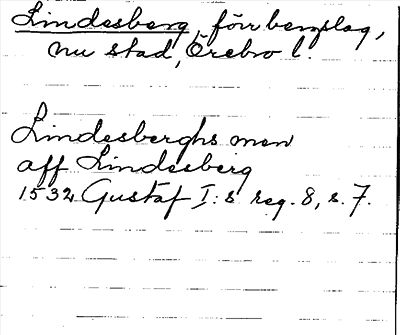 Lindesberg, förr bergslag,
nu stad, Örebro l.
Lindesberghs men
aff Lindesberg
1532 Gustaf I:s reg. 8, s. 7.